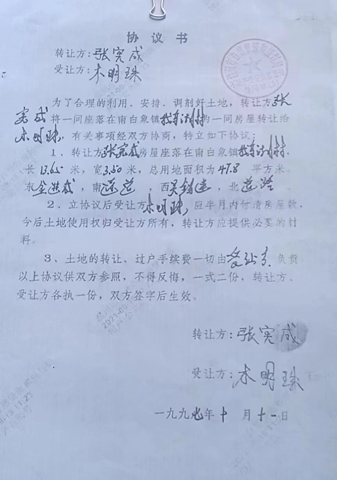 协 议 书
转让方：张宪成
受让方：木明珠
为了合理的利用、安持、调剂好土地，转让方张
宪成将一间座落在南白象镇 村一间房屋转让给
木明珠，有关事项经双方协商，特立如下协议：
1、转让方张宪成房屋座落在南白象镇 村，
长13.65米，宽3.50米，总用地面积为47.8平方米，
东金洪成，南 ，西 ，北
2、立协议后受让方木明珠，应半月内付清房屋款，
今后土地使用权归受让方所有，转让方应提供必要的材
料。
3、土地的转让、过户手续费一切由受让方负责
以上协议供双方参照，不得反悔，一式二份，转让方、
受让方各执一份，双方签字后生效。
转让方：张宪成
受让方：木明珠
一九九七年十月十一日